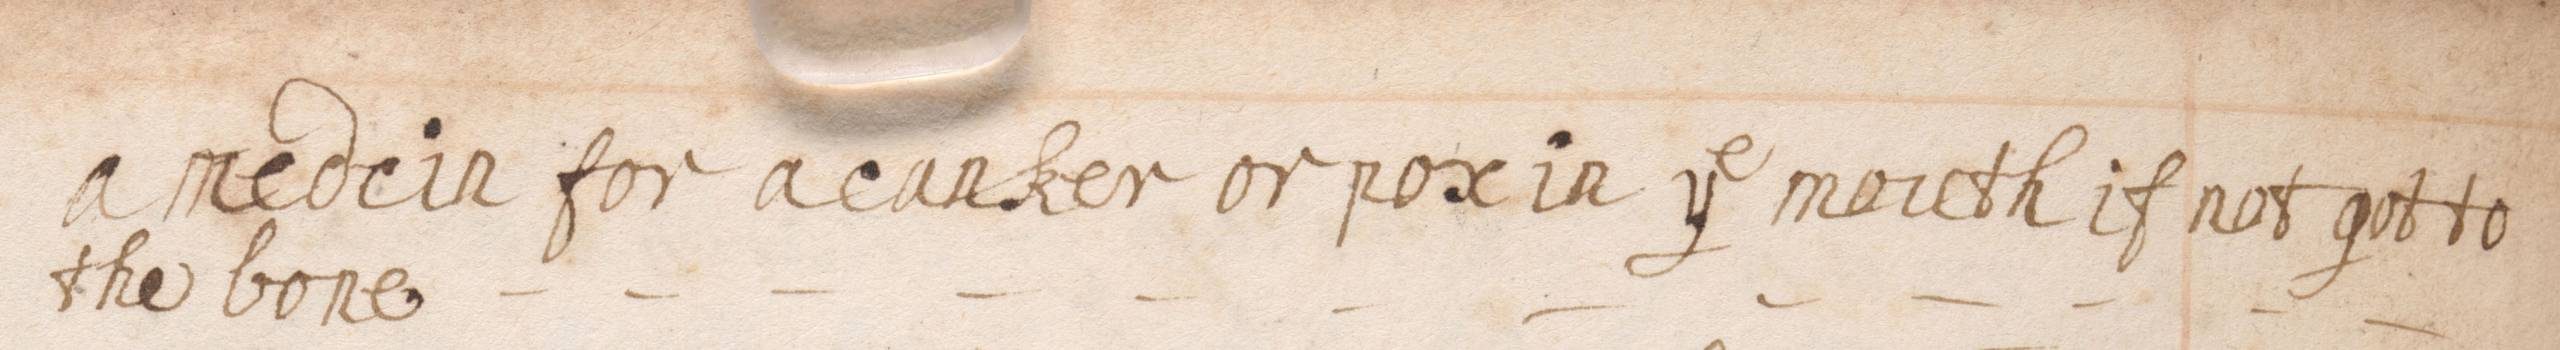 a medcin for a canker or pox in yᵉ mouth if not got to
the bone - - - - - - - - - - - -